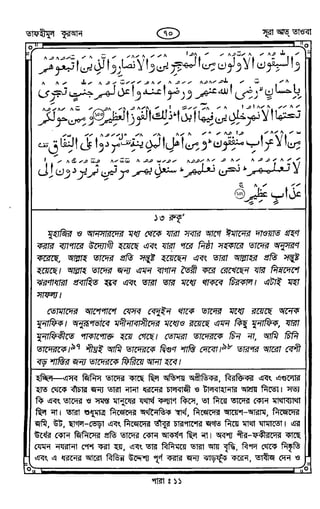 তাফহীমুল কুরআন
৭০
সূরা আত্ তাওবা
وَالسّٰبِقُوْنَ الْاَوَّلُوْنَ مِنَ الْمُهٰجِرِيْنَ وَالْاَنْصَارِ وَالَّذِيْنَ اتَّبَعُوْهُمْ
بِاِحْسَانٍ رَّضِيَ اللّٰهُ عَنْهُمْ وَرَضُوْا عَنْهُ وَاَعَدَّ لَهُمْ جَنّٰتٍ تَجْرِيْ
تَحْتَهَا الْاَنْهٰرُ خٰلِدِيْنَ فِيْهَا اَبَدًا ذٰلِكَ الْفَوْزُ الْعَظِيْمُ وَمِمَّنْ حَوْلَكُمْ
مِّنَ الْاَعْرَابِ مُنٰفِقُوْنَ وَمِنْ اَهْلِ الْمَدِيْنَةِ مَرَدُوْا عَلَى النِّفَاقِ
لَا تَعْلَمُهُمْ نَحْنُ نَعْلَمُهُمْ سَنُعَذِّبُهُمْ مَّرَّتَيْنِ ثُمَّ يُرَدُّوْنَ اِلٰى
عَذَابٍ عَظِيْمٍ
১৩ রুকূ'
মুহাজির ও আনসারদের মধ্য থেকে যারা সবার আগে ঈমানের দাওয়াত গ্রহণ
করার ব্যাপারে উদ্যোগী হয়েছে এবং যারা পরে নিষ্ঠা সহকারে তাদের অনুসরণ
করেছে, আল্লাহ তাদের প্রতি সন্তুষ্ট হয়েছেন এবং তারা আল্লাহর প্রতি সন্তুষ্ট
হয়েছে। আল্লাহ তাদের জন্য এমন বাগান তৈরী করে রেখেছেন যার নিম্নদেশে
ঝরণাধারা প্রবাহিত হবে এবং তারা তার মধ্যে থাকবে চিরকাল। এটাই মহা
সাফল্য।
তোমাদের আশেপাশে যেসব বেদুইন থাকে তাদের মধ্যে রয়েছে অনেক
মুনাফিক। অনুরূপভাবে মদীনাবাসীদের মধ্যেও রয়েছে এমন কিছু মুনাফিক, যারা
মুনাফিকীতে পাকাপোক্ত হয়ে গেছে। তোমরা তাদেরকে চিন না, আমি চিনি
তাদেরকে।৯৭ শীঘ্রই আমি তাদেরকে দ্বিগুণ শাস্তি দেবো।৯৮ তারপর আরো বেশী
বড় শাস্তির জন্য তাদেরকে ফিরিয়ে আনা হবে।
হচ্ছিল—এসব জিনিস তাদের কাছে ছিল অতিশয় অপ্রীতিকর, বিরক্তিকর এবং এগুলোর
হাত থেকে বাঁচার জন্য তারা নানা ধরনের চালবাজী ও টালবাহানার আশ্রয় নিতো। সত্য
কি এবং তাদের ও সমস্ত মানুষের যথার্থ কল্যাণ কিসে, তা নিয়ে তাদের কোন মাথাব্যথা
ছিল না। তারা শুধুমাত্র নিজেদের অর্থনৈতিক স্বার্থ, নিজেদের আয়েশ-আরাম, নিজেদের
জমি, উট, ছাগল-ভেড়া এবং নিজেদের তাঁবুর চারপাশের জগত নিয়ে মাথা ঘামাতো। এর
ঊর্ধের কোন জিনিসের প্রতি তাদের কোন আকর্ষণ ছিল না। অবশ্য পীর-ফকীরদের কাছে
যেমন নযরানা পেশ করা হয়, এবং তার বিনিময়ে তারা আয় বৃদ্ধি, বিপদ থেকে নিষ্কৃতি
এবং এ ধরনের আরো বিভিন্ন উদ্দেশ্য পূর্ণ করার জন্য ঝাড়ফুঁক করেন, তাবীজ দেন ও
পারা : ১১